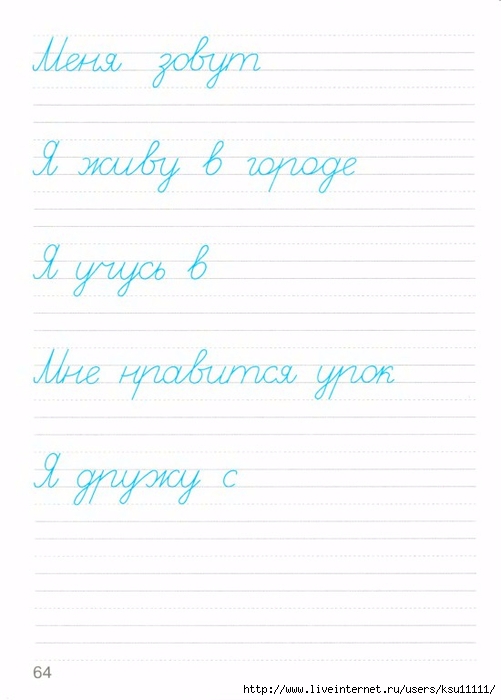 Меня зовут
Я живу в городе
Я учусь в
Мне нравится урок
Я дружу с
64
http://www.liveinternet.ru/users/ksu11111/